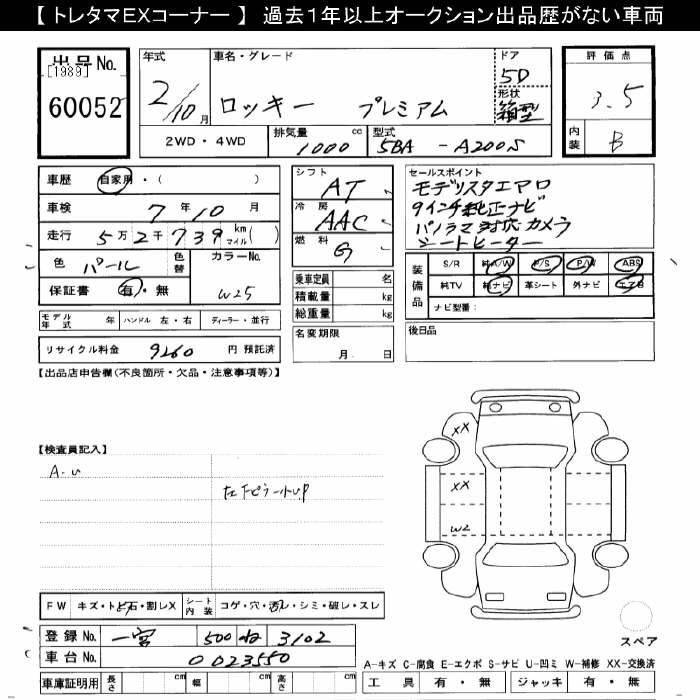 【 トレタマEXコーナー 】 過去１年以上オークション出品歴がない車両
出品No.
[1989]
60052
年式
2/10月
車名・グレード
ロッキー プレミアム
ドア
5D
形状
箱型
評価点
3.5
内装
B
2WD・4WD
排気量
1000 cc
型式
5BA - A200S
車歴 自家用・( )
車検 7年10月
走行 5万2千739 km マイル( )
色 パール
色替
カラーNo.
W25
保証書 有・無
モデル年式 年 ハンドル 左・右 ディーラー・並行
リサイクル料金 9260 円 預託済
シフト
AT
冷房
AAC
燃料
G
乗車定員 名
積載量 kg
総重量 kg
名変期限
月 日
セールスポイント
モデリスタエアロ
9インチ純正ナビ
パノラマ対応カメラ
シートヒーター
装備品
S/R 純A/W P/S P/W ABS
純TV 純ナビ 革シート 外ナビ エアB
ナビ型番:
後日品
【出品店申告欄(不良箇所・欠品・注意事項等)】
【検査員記入】
A-U
左下ピラー小UP
XX
XX
W2
FW キズ・トビ石・割レX
シート内装 コゲ・穴・汚レ・シミ・破レ・スレ
登録No. 一宮 500 ね 3102
車台No. 0023550
車庫証明用 長さ cm 幅 cm 高さ cm
スペア
A-キズ C-腐食 E-エクボ S-サビ U-凹ミ W-補修 XX-交換済
工具 有・無 ジャッキ 有・無